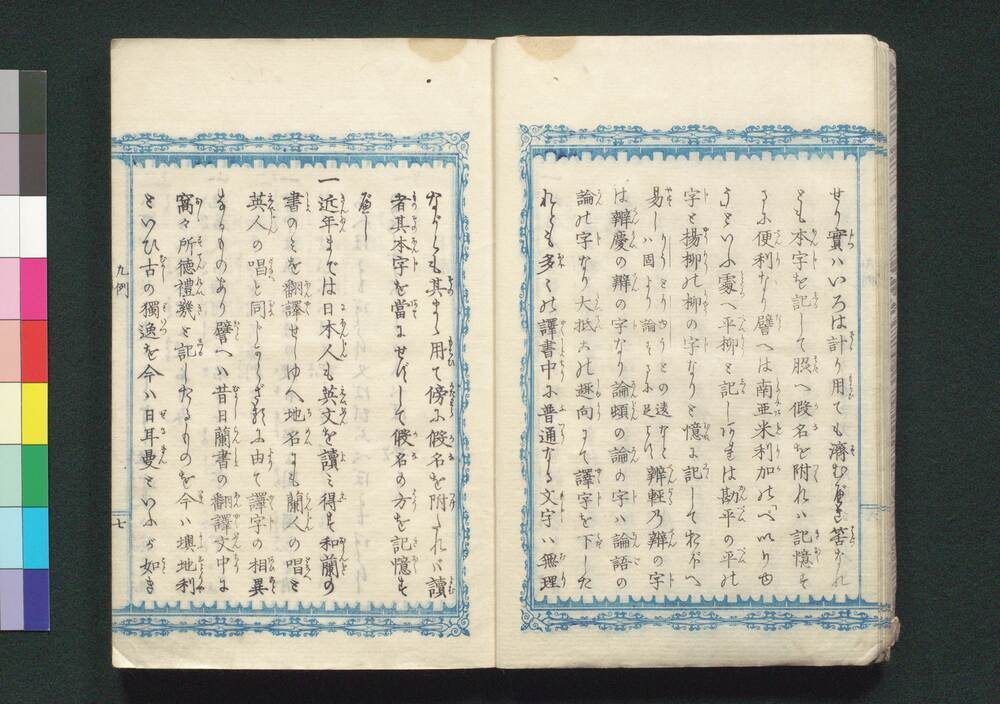 せり實ハいろは計り用ても濟むべき筈なれ
とも本字を記して照へ假名を附れハ記憶す
るに便利なり譬へは南亜米利加のペいりゆ
うといふ處へ平柳と記しあれは勘平の平の
字と揚柳の柳の字なりと憶に記しておぼへ
易しハ固より論するに足らす辯輕乃辯の字
は辯慶の辯の字なり論頓の論の字ハ論語の
論の字なり大抵其の趣向にて譯字を下した
れとも多くの譯書中に普通なる文字ハ無理
ながらも其まゝ用て傍に假名を附たれバ讀
者其本字を當にせずして假名の方を記憶す
べし
一近年までは日本人も英文を讀ミ得す和蘭の
書のミを翻譯せしゆへ地名にも蘭人の唱ミ
英人の唱と同じからざるに由て譯字の相異
なるものあり譬へハ昔日蘭書の翻譯文中に
窩々所徳禮幾と記したるものを今ハ墺地利
といひ古の獨逸を今ハ日耳曼といふが如き
九例
七